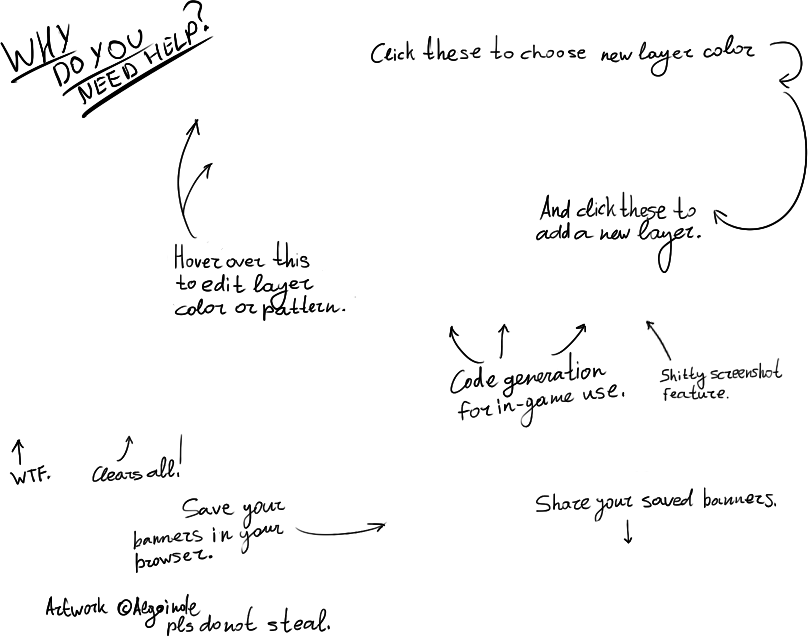 WHY
DO YOU
NEED HELP?
Click these to choose new layer color
And click these to
add a new layer.
Hover over this
to edit layer
color or pattern.
Code generation
for in-game use.
Shitty screenshot
feature.
WTF.
Clears all!
Save your
banners in your
browser.
Share your saved banners.
Artwork ©
pls do not steal.